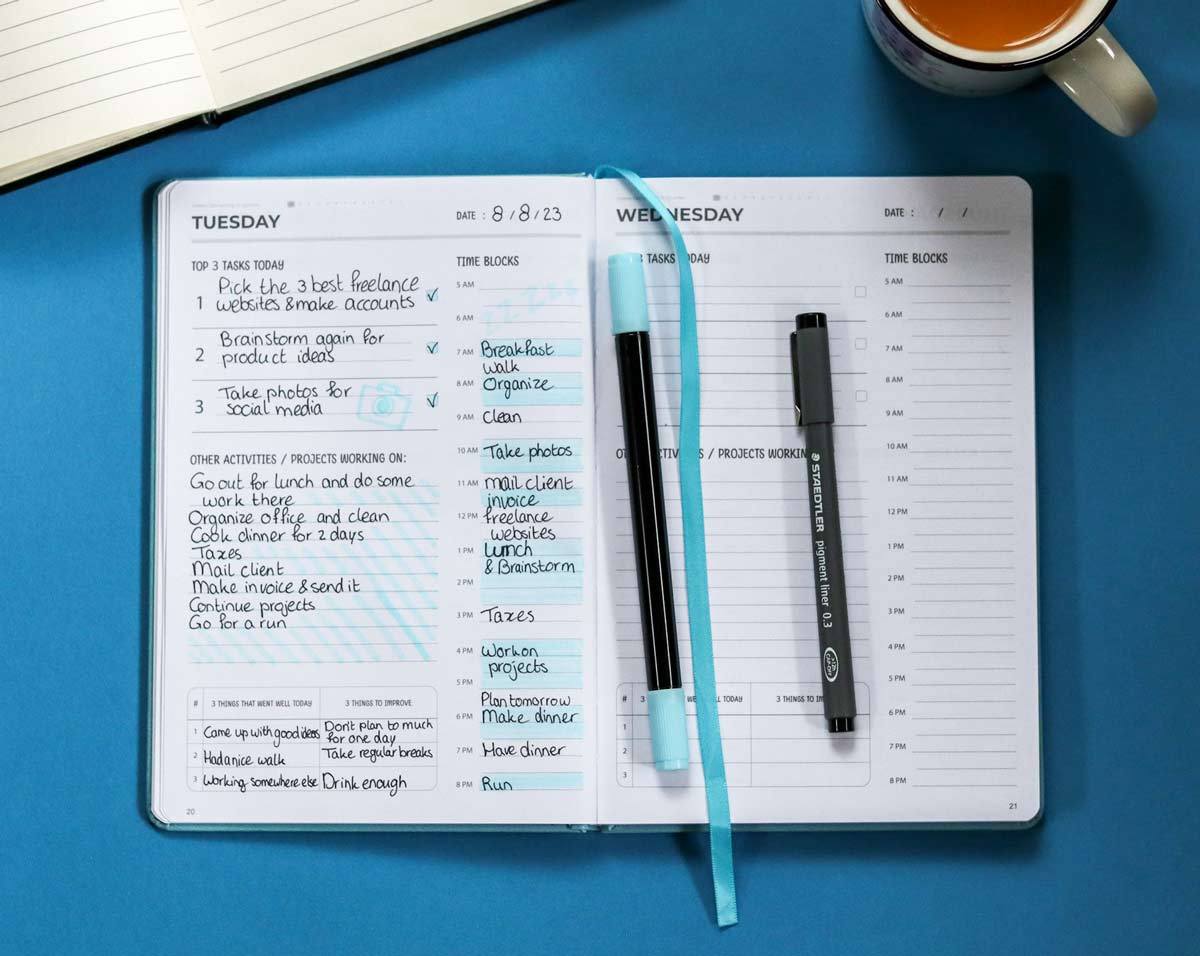 TUESDAY
DATE : 8/8/23
TOP 3 TASKS TODAY
1 Pick the 3 best freelance
websites & make accounts
2 Brainstorm again for
product ideas
3 Take photos for
social media
OTHER ACTIVITIES / PROJECTS WORKING ON:
Go out for lunch and do some
work there
Organize office and clean
Cook dinner for 2 days
Taxes
Mail client
Make invoice & send it
Continue projects
Go for a run
# 3 THINGS THAT WENT WELL TODAY 3 THINGS TO IMPROVE
1 Came up with good ideas Don't plan to much
for one day
2 Had a nice walk Take regular breaks
3 Working somewhere else Drink enough
20
TIME BLOCKS
5 AM
zzzzzz
6 AM
7 AM Breakfast
walk
8 AM Organize
9 AM Clean
10 AM Take photos
11 AM mail client
invoice
12 PM freelance
websites
1 PM Lunch
& Brainstorm
2 PM
3 PM Taxes
4 PM Work on
projects
5 PM
Plan tomorrow
6 PM Make dinner
7 PM Have dinner
8 PM Run
WEDNESDAY
DATE : / /
3 TASKS TODAY
OTHER ACTIVITIES / PROJECTS WORKING
# 3 WENT WELL TODAY 3 THINGS TO IM
1
2
3
TIME BLOCKS
5 AM
6 AM
7 AM
8 AM
9 AM
10 AM
11 AM
12 PM
1 PM
2 PM
3 PM
4 PM
5 PM
6 PM
7 PM
8 PM
21
STAEDTLER pigment liner 0.3